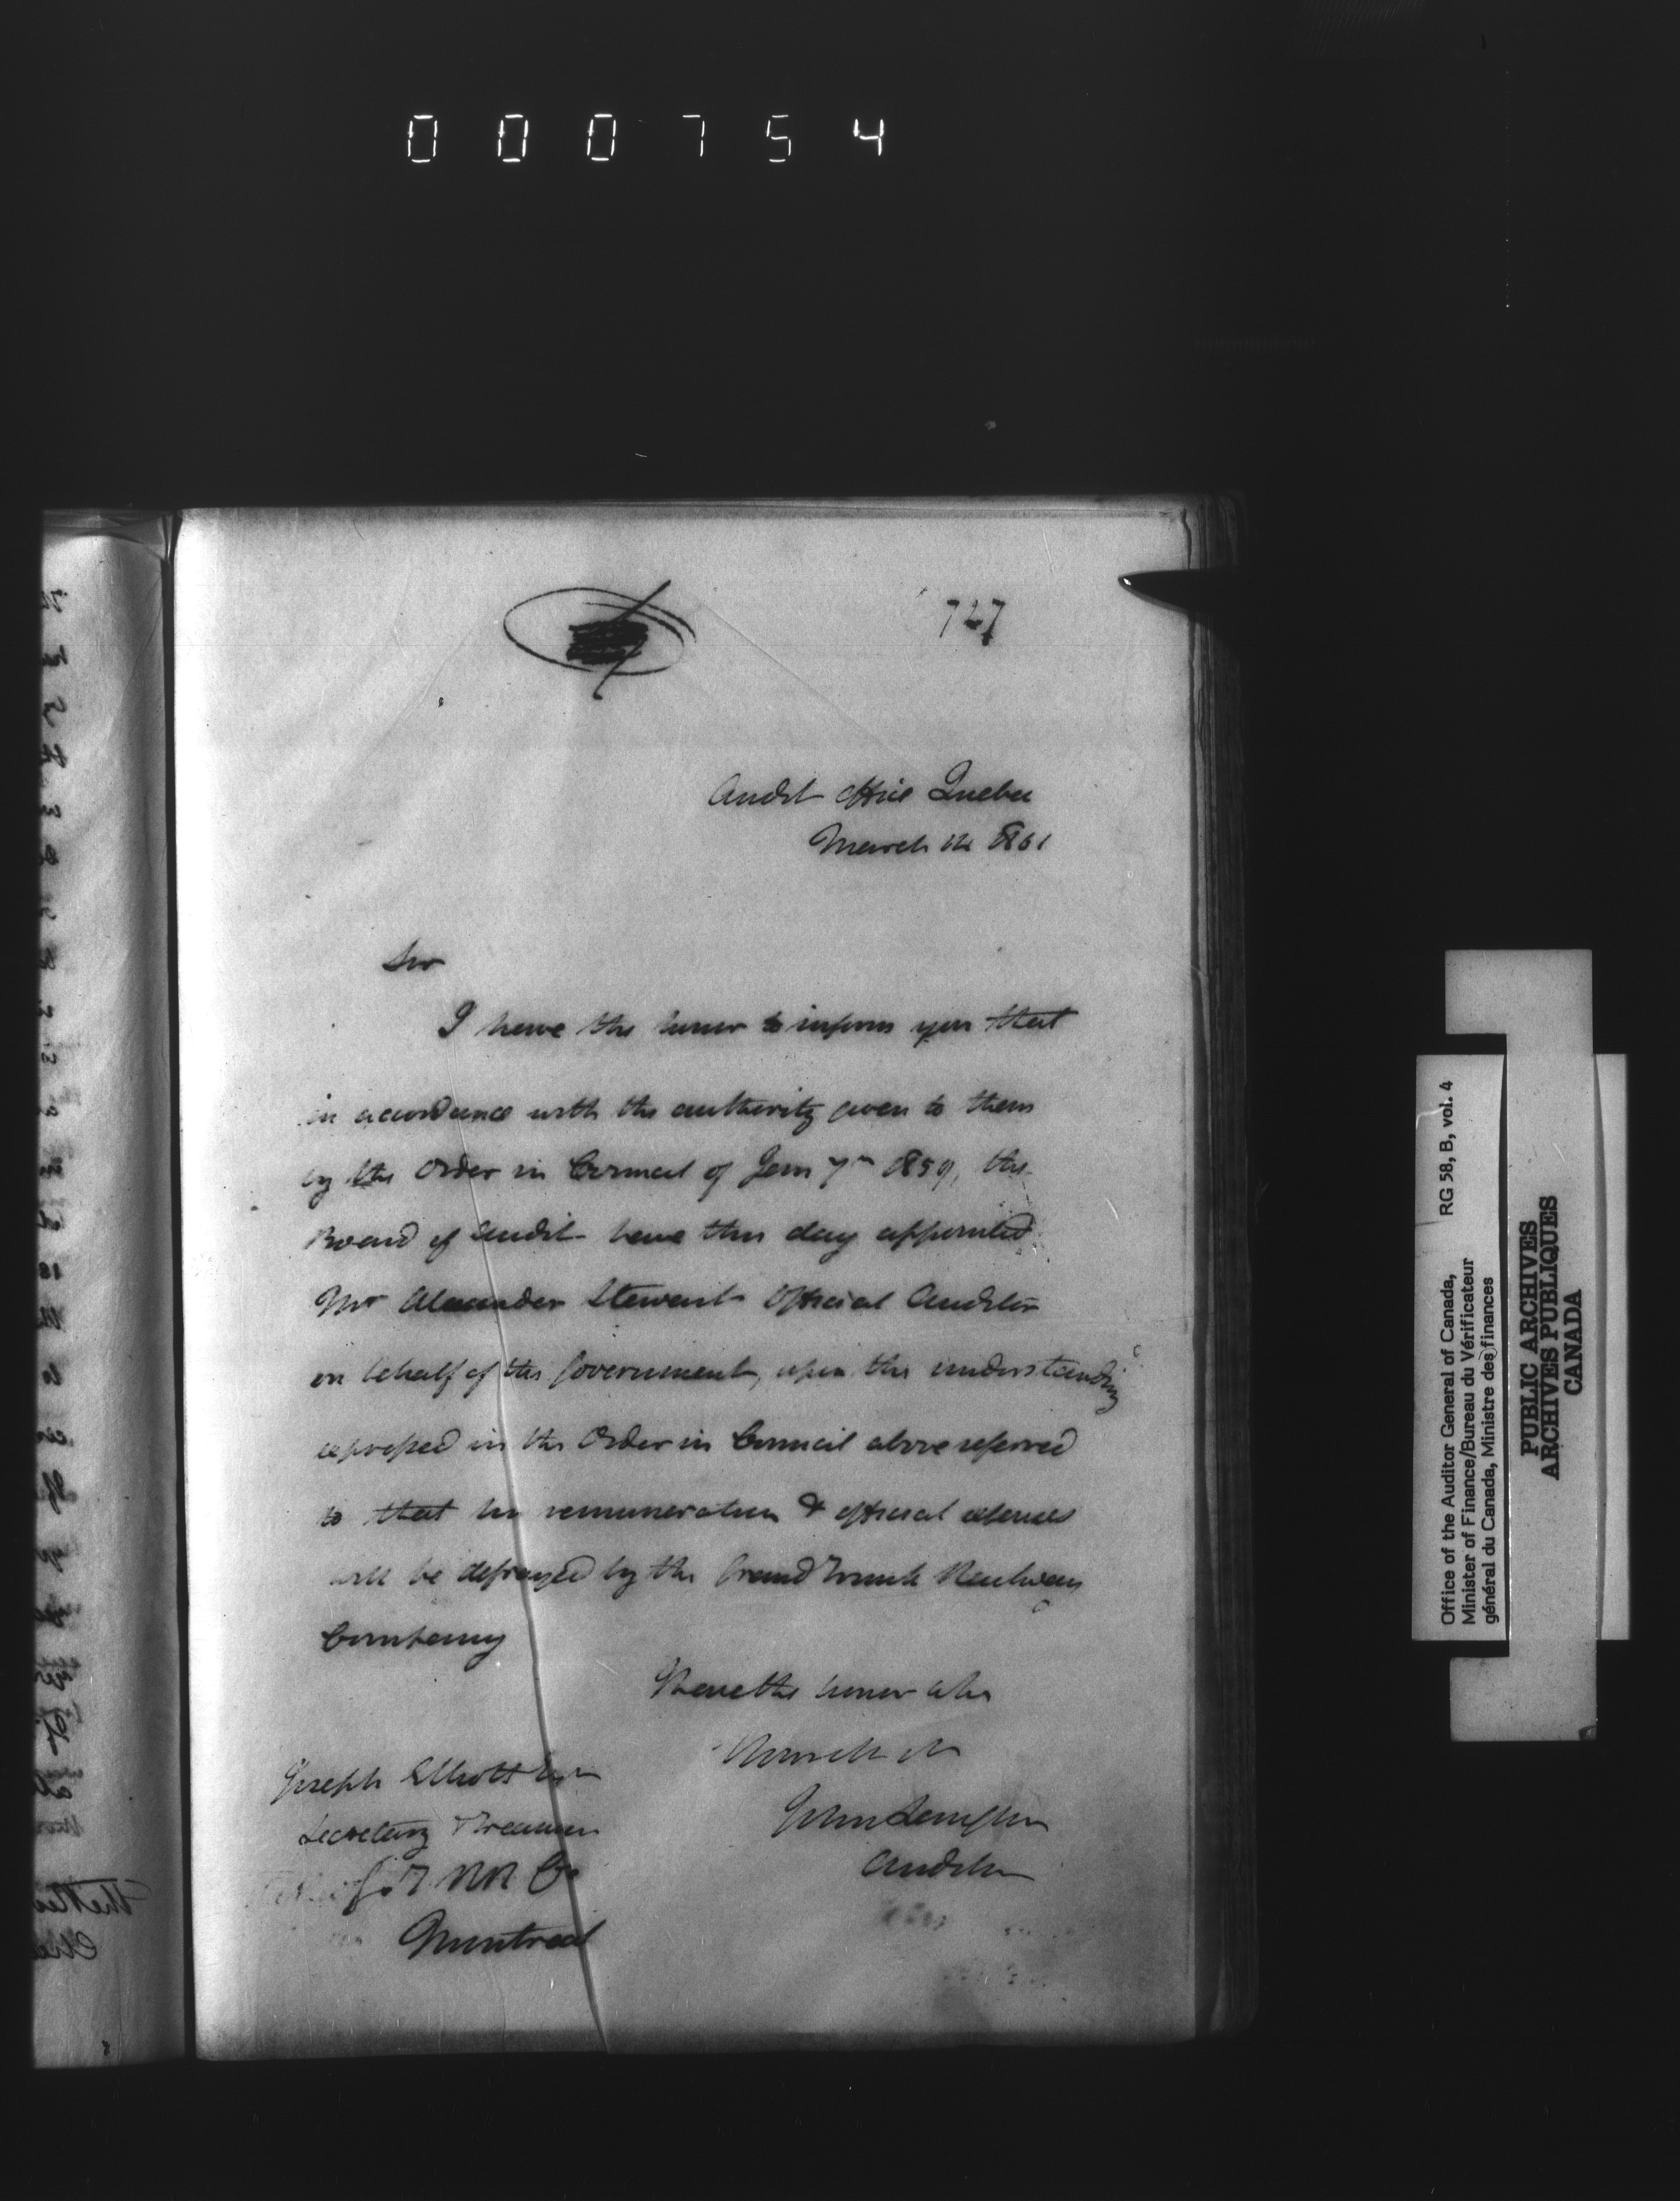 000754
727
Audit Office Quebec
March 12 1861
Sir
I have the honor to inform you that
in accordance with the authority given to them
by the Order in Council of Jany 7th 1859, the
Board of Audit have this day appointed
Mr Alexander Stewart Official Auditor
on behalf of the Government, upon the understanding
expressed in the Order in Council above referred
to that his remuneration & official expenses
will be defrayed by the Grand Trunk Railway
Company
I have the honor to be
John Langton
Auditor
Joseph Elliott Esqr
Secretary & Treasurer
G. T. RR Co
Montreal
Office of the Auditor General of Canada, RG 58, B, vol. 4
Minister of Finance/Bureau du Vérificateur
général du Canada, Ministre des finances
PUBLIC ARCHIVES
ARCHIVES PUBLIQUES
CANADA